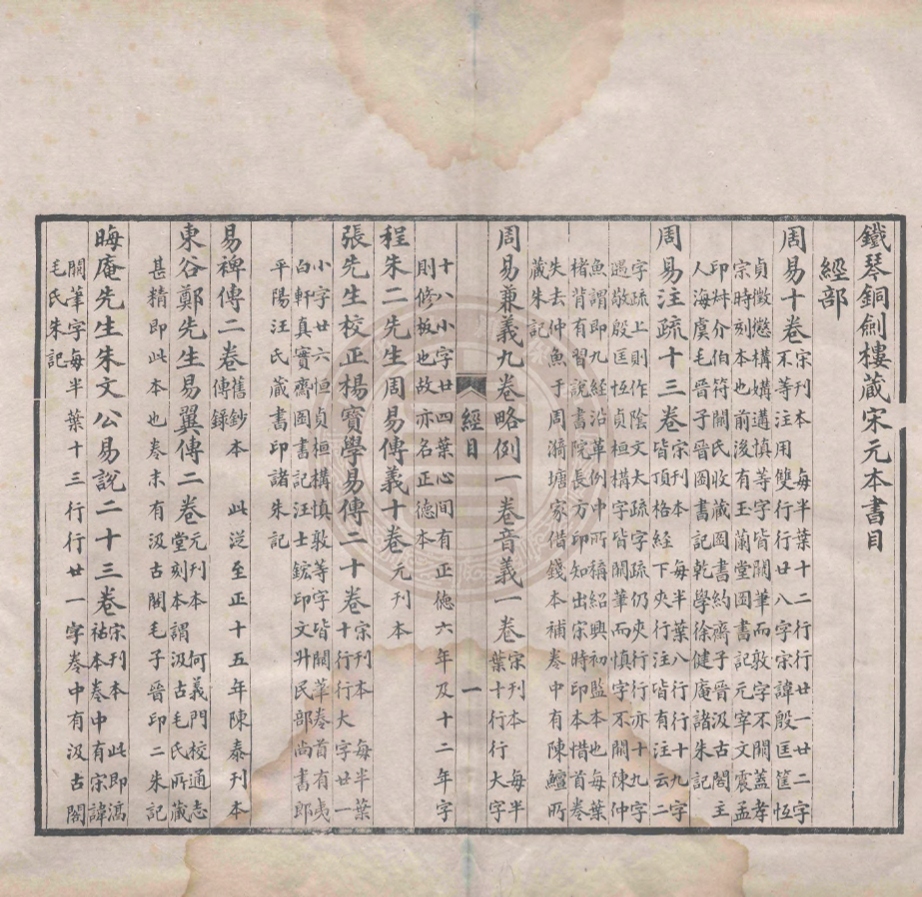 鐵琴銅劍樓藏宋元本書目
經部
周易十卷
宋刊本 每半葉十二行行廿一廿二字
不等注用雙行行廿八字宋諱殷匡筐恆
貞徵懲構媾遘慎等字皆闕筆而敦字不闕蓋孝
宗時刻本也前後有玉蘭堂圖書記元宰文震孟
印介伯符關氏收藏圖書約齋子晉汲古閣主
人海虞毛晉子晉圖書記乾學徐健庵諸朱記
周易注疏十三卷
宋刊本 每半葉八行行十九字
皆頂格經下夾行注皆有注云二
字疏上則作陰文大疏字疏仍夾行亦十九字
遇敬殷匡恆貞桓構字皆闕筆而慎字不闕陳仲
魚謂即九經沿革例中所稱紹興初監本也每葉
楮背有習說書院長方印知出宋時印本惜首卷
失去仲魚于周漪塘家借錢本補卷中有陳鱣所
藏朱記
周易兼義九卷略例一卷音義一卷
宋刊本 每半
葉十行行大字
經目
一
十八小字廿四葉心間有正德六年及十二年字
則修板也故亦名正德本
程朱二先生周易傳義十卷 元刊本
張先生校正楊寶學易傳二十卷
宋刊本 每半葉
十行行大字廿一
小字廿六恆貞桓構慎敦等字皆闕筆卷首有夷
白軒真實齋圖書記汪士鋐印文升民部尚書郎
平陽汪氏藏書印諸朱記
易裨傳二卷
舊鈔本 此從至正十五年陳泰刊本
傳錄
東谷鄭先生易翼傳二卷
元刊本 何義門校通志
堂刻本謂汲古毛氏所藏
甚精即此本也卷末有汲古閣毛子晉印二朱記
晦庵先生朱文公易說二十三卷
宋刊本 此即
祜本卷中有宋諱
闕筆字每半葉十三行行廿一字卷中有汲古閣
毛氏朱記